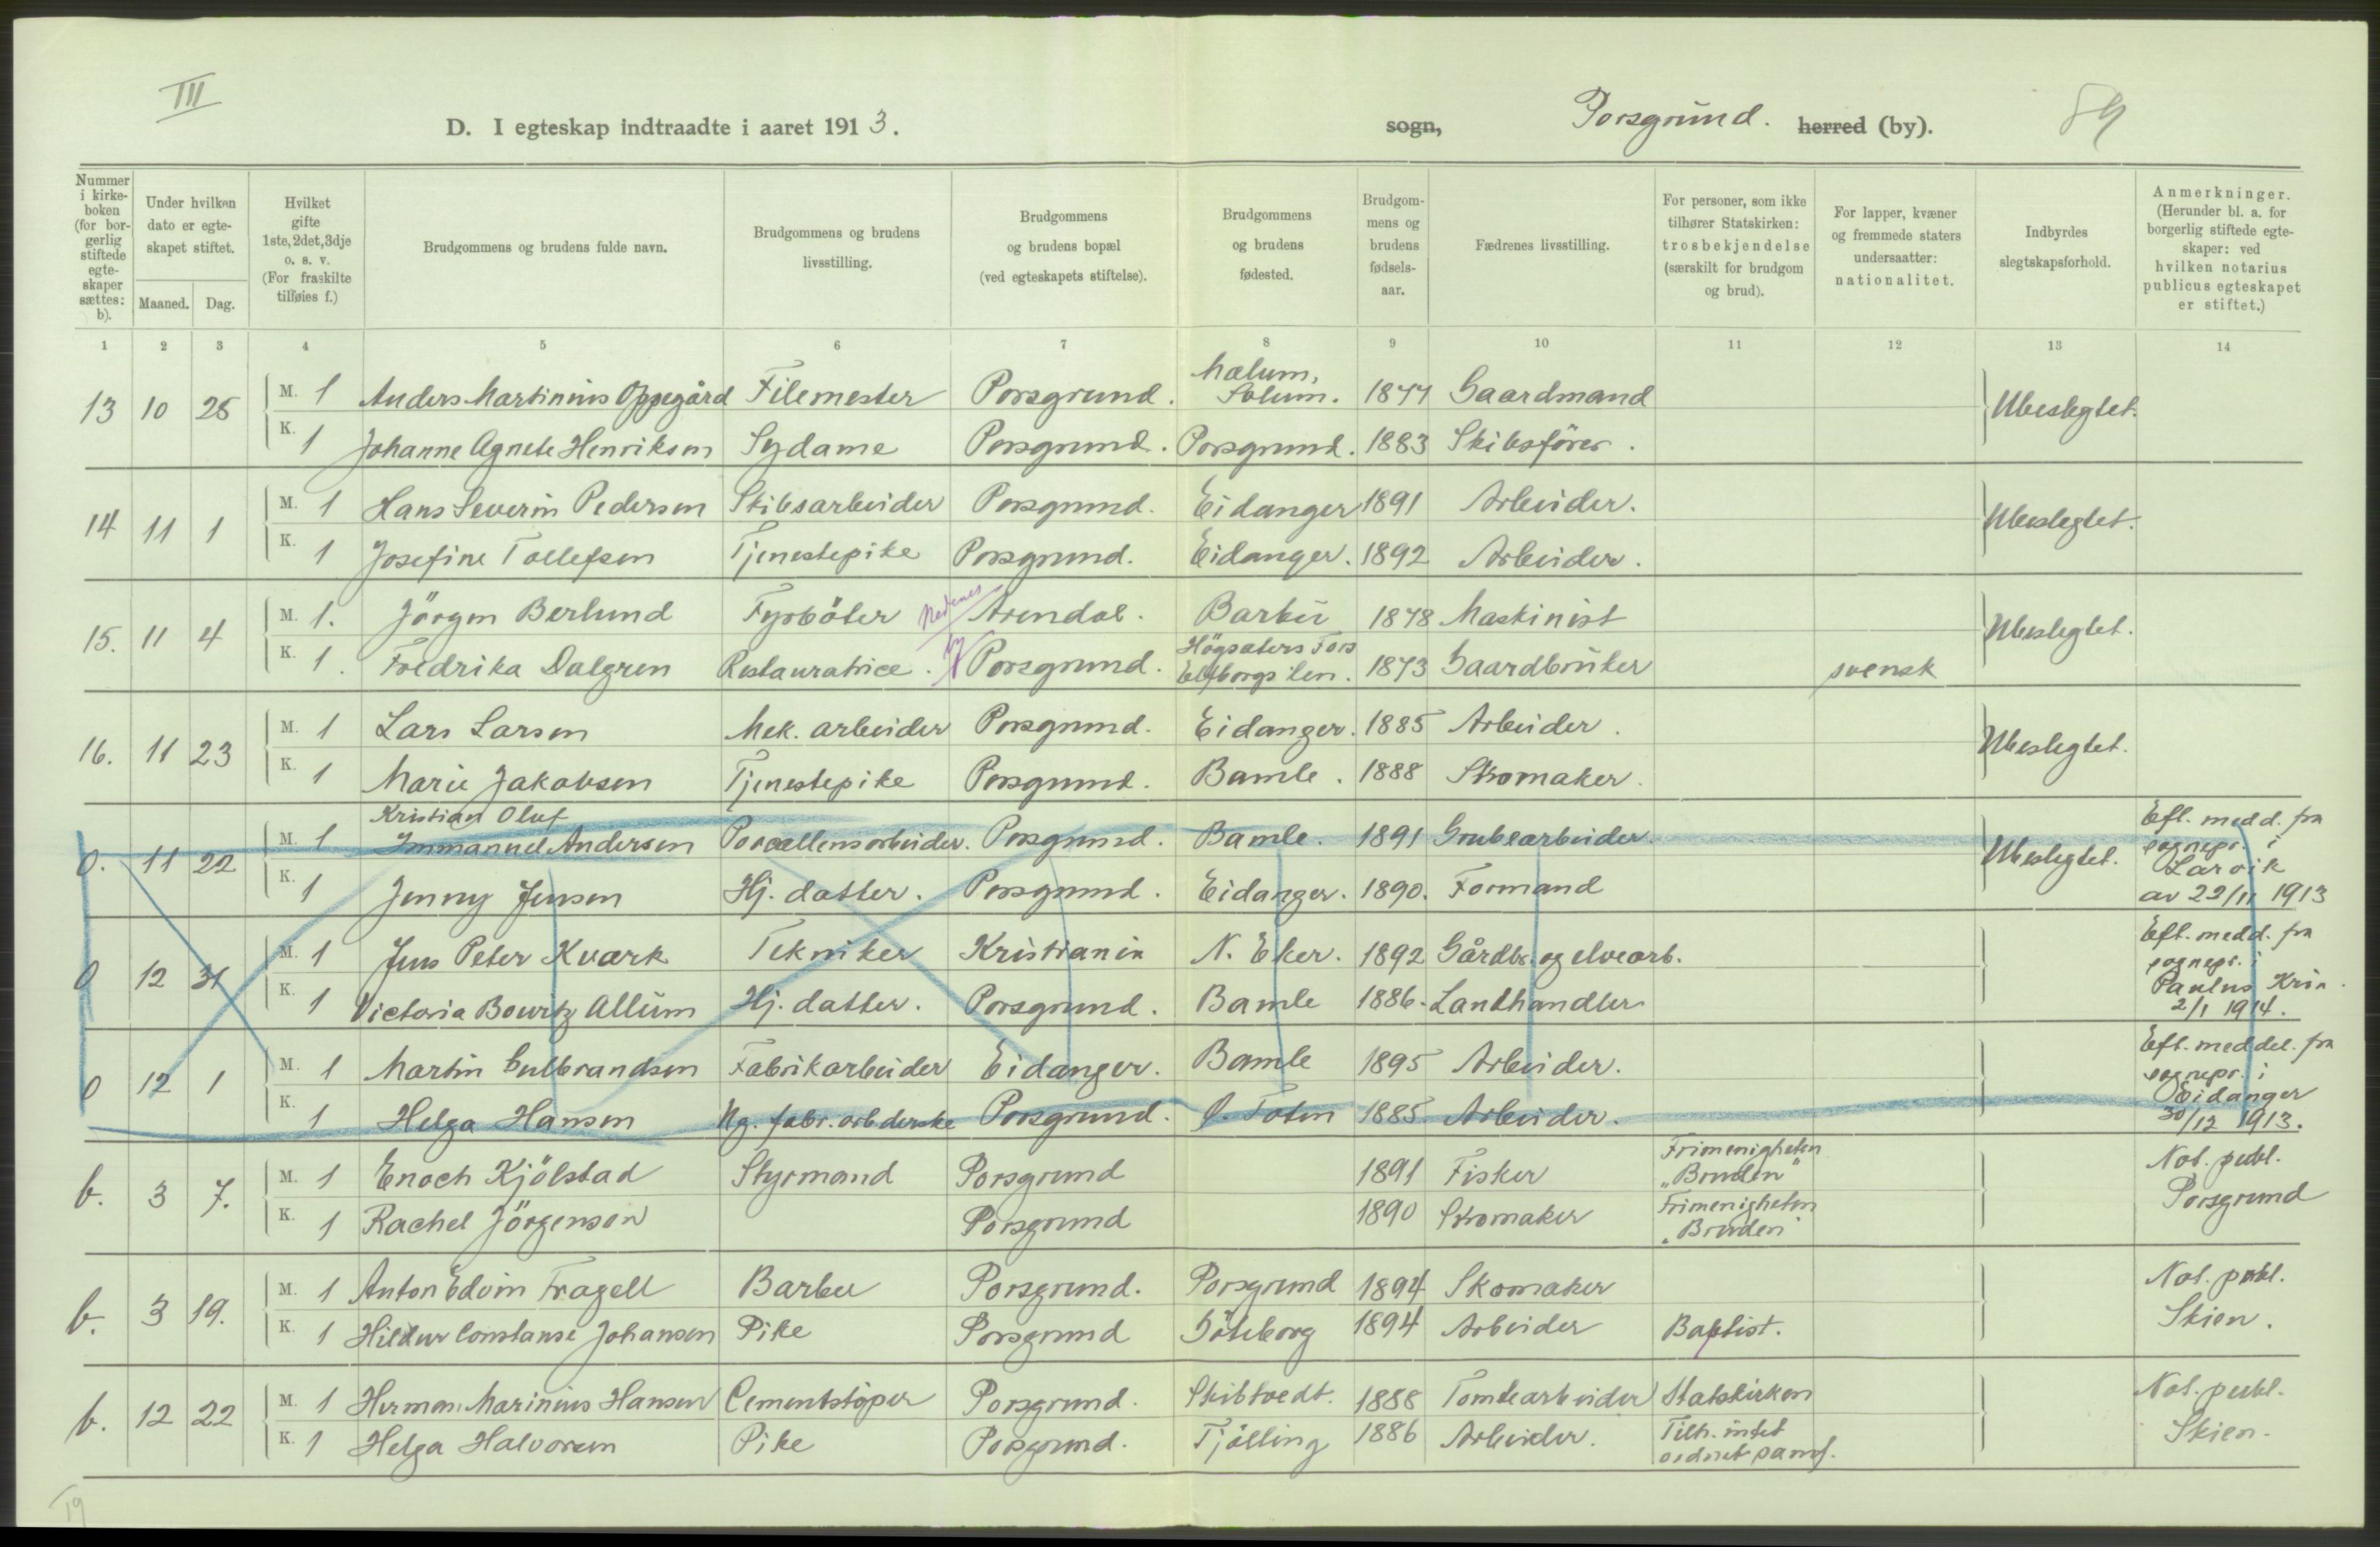 III
D. I egteskap indtraadte i aaret 1913.
sogn, Porsgrund. herred (by).
89
Nummer i kirkeboken (for borgerlig stiftede egteskaper sættes: b).
Under hvilken dato er egteskapet stiftet.
Maaned. Dag.
Hvilket gifte 1ste, 2det, 3dje o. s. v. (For fraskilte tilføies f.)
Brudgommens og brudens fulde navn.
Brudgommens og brudens livsstilling.
Brudgommens og brudens bopæl (ved egteskapets stiftelse).
Brudgommens og brudens fødested.
Brudgommens og brudens fødselsaar.
Fædrenes livsstilling.
For personer, som ikke tilhører Statskirken: trosbekjendelse (særskilt for brudgom og brud).
For lapper, kvæner og fremmede staters undersaatter: nationalitet.
Indbyrdes slegtskapsforhold.
Anmerkninger. (Herunder bl. a. for borgerlig stiftede egteskaper: ved hvilken notarius publicus egteskapet er stiftet.)
1 2 3 4 5 6 7 8 9 10 11 12 13 14
13 10 25 M. 1 Anders Martinius Oppegård Filemester Porsgrund. Mælum, Solum. 1877 Gaardmand Ubeslegtet.
K. 1 Johanne Agnete Henriksen Sydame Porsgrund. Porsgrund. 1883 Skibsfører.
14 11 1 M. 1 Hans Severin Pedersen Skibsarbeider Porsgrund. Eidanger 1891 Arbeider. Ubeslegtet.
K. 1 Josefine Tollefsen Tjenestepike Porsgrund. Eidanger. 1892 Arbeider.
15. 11 4 M. 1. Jörgen Berlund Fyrböter Nedenes Arendal. Barbu 1878 Maskinist Ubeslegtet.
K. 1. Fredrika Dalgren Restauratrice. by Porsgrund. Högsäters Fors Elfborgs len. 1873 Gaardbruker svensk
16. 11 23 M. 1 Lars Larsen Mek. arbeider Porsgrund. Eidanger. 1885 Arbeider. Ubeslegtet.
K. 1 Marie Jakobsen Tjenestepike Porsgrund. Bamle. 1888 Skomaker.
O. 11 22 M. 1 Kristian Oluf Immanuel Andersen Porcellensarbeider. Porsgrund. Bamle. 1891 Grubearbeider. Ubeslegtet. Eft. medd. fra sognepr. i Larvik av 22/11 1913
K. 1 Jenny Jensen Hj. datter. Porsgrund. Eidanger. 1890. Formand
O 12 31 M. 1 Jens Peter Kværk Tekniker Kristiania N. Eker. 1892 Gårdbr. og elvearb. Eft. medd. fra sognepr. i Paulus Kria. 2/1 1914.
K. 1 Victoria Bowitz Allum Hj. datter. Porsgrund. Bamle 1886. Landhandler
O 12 1 M. 1 Martin Gulbrandsen Fabrikarbeider Eidanger. Bamle 1895 Arbeider. Eft. meddel. fra sognepr. i Eidanger 30/12 1913.
K. 1 Helga Hansen Ng. fabr. arb.derske Porsgrund. Ø. Toten 1885. Arbeider.
b. 3 7. M. 1 Enoch Kjölstad Styrmand Porsgrund 1891 Fisker Frimenigheten „Bruden" Not. publ. Porsgrund
K. 1 Rachel Jörgensen Porsgrund 1890 Skomaker Frimenigheten „Bruden"
b. 3 19. M. 1 Anton Edvin Fragell Barber Porsgrund. Porsgrund 1894 Skomaker Not. publ. Skien.
K. 1 Hildur Constanse Johansen Pike Porsgrund Göteborg 1894 Arbeider Baptist.
b. 12 22 M. 1 Herman Marinius Hansen Cementstöper Porsgrund. Skibtvedt. 1888 Tomtearbeider Statskirken Not. publ. Skien.
K. 1 Helga Halvorsen Pike Porsgrund. Tjölling 1886 Arbeider. Tilh. intet ordnet samf.
19